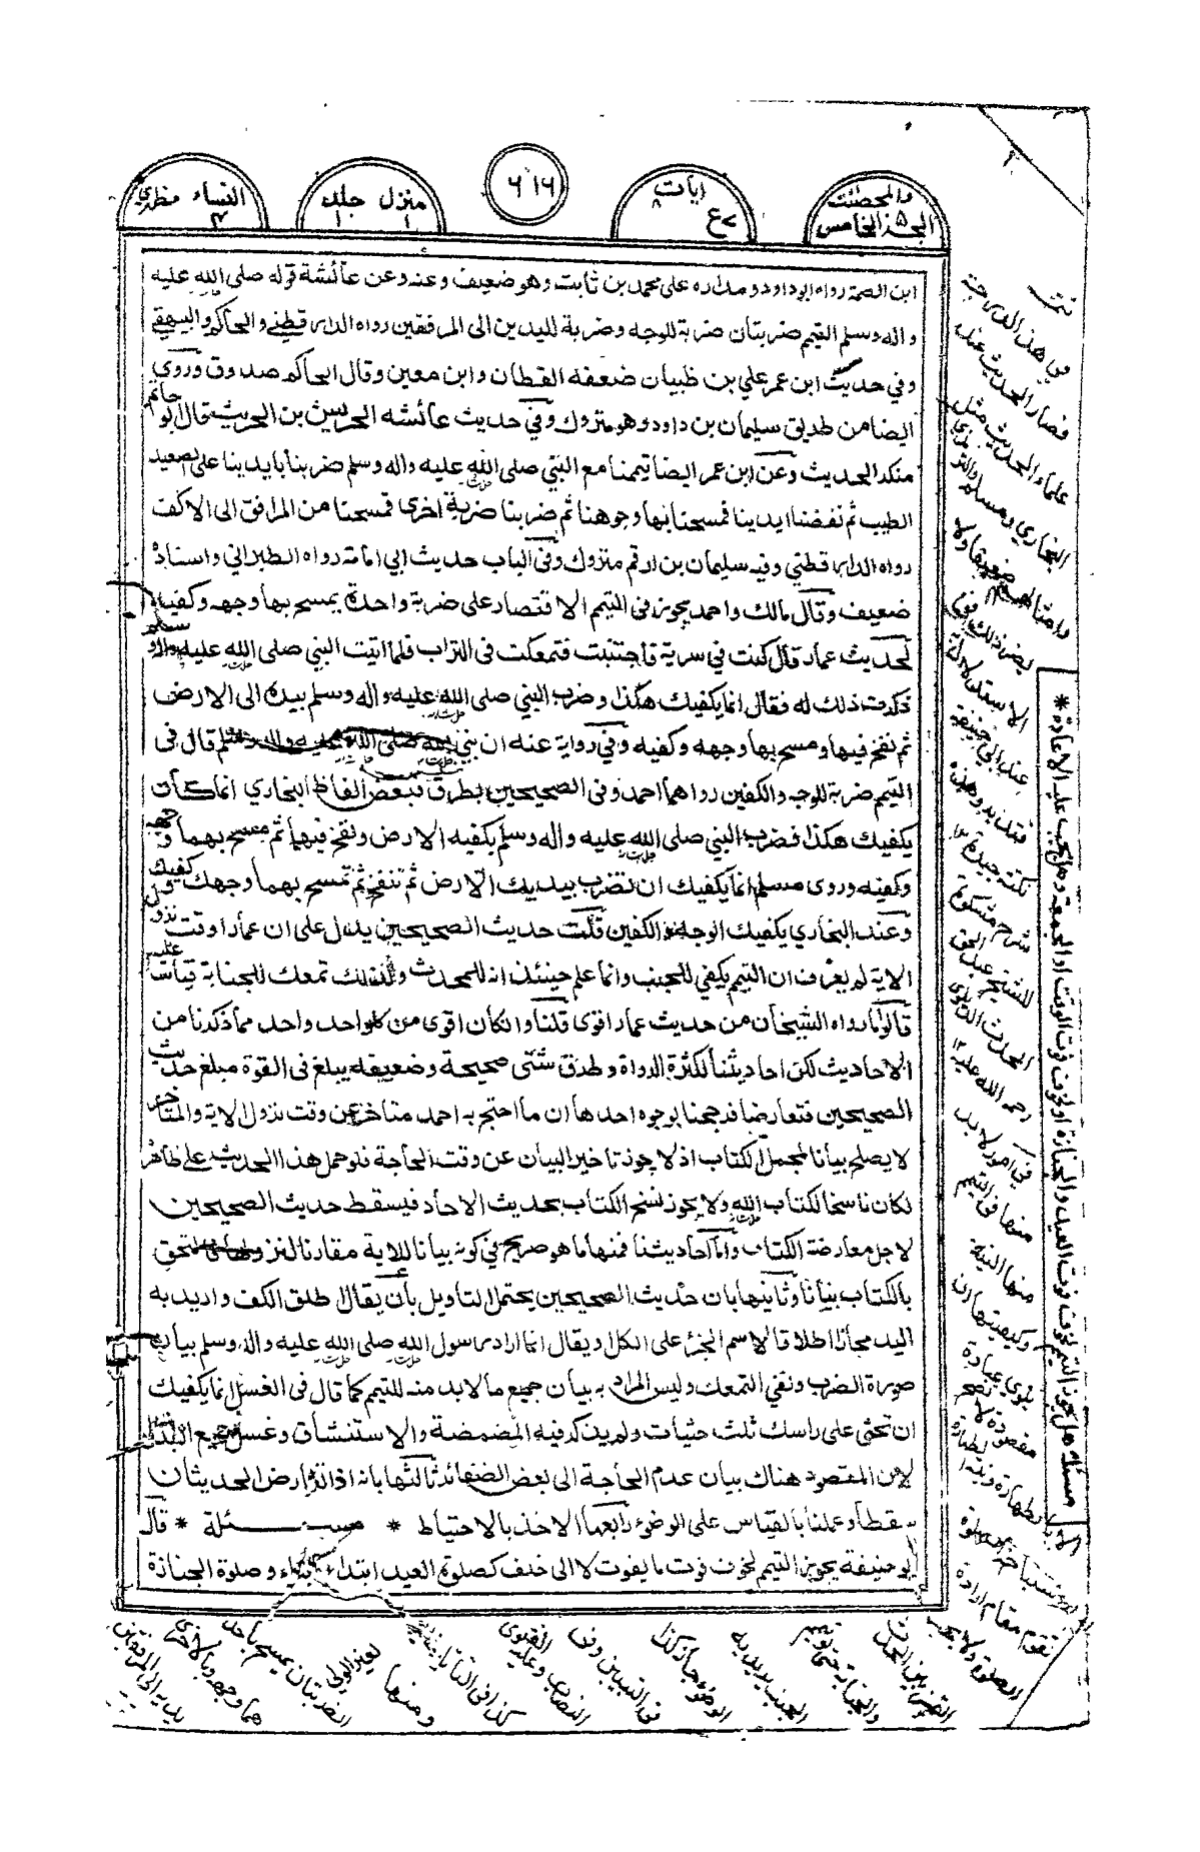 والمحصنت
الجزء الخامس ٥
ايات ٨
ع ٧
٦١٦
منزل ١ جلد ١
النساء ٤ مظهري
ابن الصمة رواه ابو داود ومداره على محمد بن ثابت وهو ضعيف وعنه وعن عائشة قوله صلى الله عليه
واله وسلم التيمم ضربتان ضربة للوجه وضربة لليدين الى المرفقين رواه الدارقطني والحاكم والبيهقي
وفي حديث ابن عمر علي بن ظبيان ضعفه القطان وابن معين وقال الحاكم صدوق وروى
ايضا من طريق سليمان بن داود وهو متروك وفي حديث عائشه الحريش بن الخريت قال ابو حاتم
منكر الحديث وعن ابن عمر ايضا تيممنا مع النبي صلى الله عليه واله وسلم ضربنا بايدينا على الصعيد
الطيب ثم نفضنا ايدينا فمسحنا بها وجوهنا ثم ضربنا ضربة اخرى فمسحنا من المرافق الى الاكف
رواه الدارقطني وفيه سليمان بن ارقم متروك وفى الباب حديث ابي امامة رواه الطبراني واسناده
ضعيف وقال مالك واحمد يجوز فى التيمم الاقتصار على ضربة واحدة يمسح بها وجهه وكفيه
لحديث عمار قال كنت في سرية فاجنبت فتمعكت فى التراب فلما اتيت النبي صلى الله عليه واله وسلم
ذكرت ذلك له فقال انما يكفيك هكذا وضرب النبي صلى الله عليه واله وسلم بيده الى الارض
ثم نفخ فيها ومسح بها وجهه وكفيه وفي رواية عنه ان نبي الله صلى الله عليه واله وسلم قال فى
التيمم ضربة للوجه والكفين رواهما احمد وفى الصحيحين بطرق فبعض الفاظ البخاري انما كان
يكفيك هكذا فضرب النبي صلى الله عليه واله وسلم بكفيه الارض ونفخ فيهما ثم مسح بهما وجهه
وكفيه وروى مسلم انما يكفيك ان تضرب بيديك الارض ثم تنفخ ثم تمسح بهما وجهك وكفيك
وعند البخاري يكفيك الوجه والكفين قلت حديث الصحيحين يدل على ان عمارا وقت نزول
الاية لم يعرف ان التيمم يكفي للجنب وانما علم حينئذ انه للمحدث ولذلك تمعك للجنابة قياسا عليه
قالوا ما رواه الشيخان من حديث عمار اقوى قلنا وان كان اقوى من كل واحد واحد مما ذكرنا من
الاحاديث لكن احاديثنا لكثرة الرواة وطرق شتى صحيحة وضعيفه يبلغ فى القوة مبلغ حديث
الصحيحين فتعارضا فرجحنا بوجوه احدها ان ما احتج به احمد متاخر عن وقت نزول الاية والمتاخر
لا يصلح بيانا لمجمل الكتاب اذ لا يجوز تاخير البيان عن وقت الحاجة فلو حمل هذا الحديث على ظاهره
لكان ناسخا لكتاب الله ولا يجوز نسخ الكتاب بحديث الاحاد فيسقط حديث الصحيحين
لاجل معارضة الكتاب واما احاديثنا فمنها ما هو صريح في كونه بيانا للاية مقارنا لنزولها فالتحق
بالكتاب بيانا وثانيها بان حديث الصحيحين يحتمل التاويل بان يقال طلق الكف واريد به
اليد مجازا اطلاقا لاسم الجزء على الكل او يقال انما اراد رسول الله صلى الله عليه واله وسلم بيان
صورة الضرب ونفي التمعك وليس المراد به بيان جميع ما لا بد منه للتيمم كما قال فى الغسل انما يكفيك
ان تحثى على راسك ثلث حثيات ولم يذكر فيه المضمضة والاستنشاق وغسل جميع البدن
لان المقصود هناك بيان عدم الحاجة الى بعض الضفائر ثالثها بانه اذا تعارض الحديثان
سقطا وعملنا بالقياس على الوضوء رابعها الاخذ بالاحتياط * مسئلة * قال
ابو حنيفة يجوز التيمم لخوف فوت ما يفوت لا الى خلف كصلوة العيد ابتداء وبناء وصلوة الجنازة
مسئلة هل يجوز التيمم لخوف فوت العيد والجنازة او لخوف فوت الوقت او الجمعة وهل يجب عليه الاعادة *
فى هذا الدرجة
فصار الحديث عند
علماء الحديث مثل
البخاري ومسلم والترمذي
وامثالهم ضعيفا ولا
يضر ذلك فى
الاستدلال به
عند ابي حنيفة
فتدبر وهذه
نكتة جيدة ١٢
شرح مشكوة
للشيخ عبد الحق
المحدث الدهلوي
رحمه الله عليه ١٢
في امور لا بد
منها فى التيمم
منها النية
وكيفيتها ان
ينوي عبادة
مقصودة لا تصح
الا بالطهارة ونية الطهارة
تقوم مقام ارادة
الصلوة ولا يجب
التميز بين الحدث
والجنابة حتى لو تيمم
الجنب يريد به
الوضوء جاز كذا
فى التبيين وفى
ومنها
الضربتان يمسح باحدهما
وجهه وبالاخرى
يديه الى المرفقين